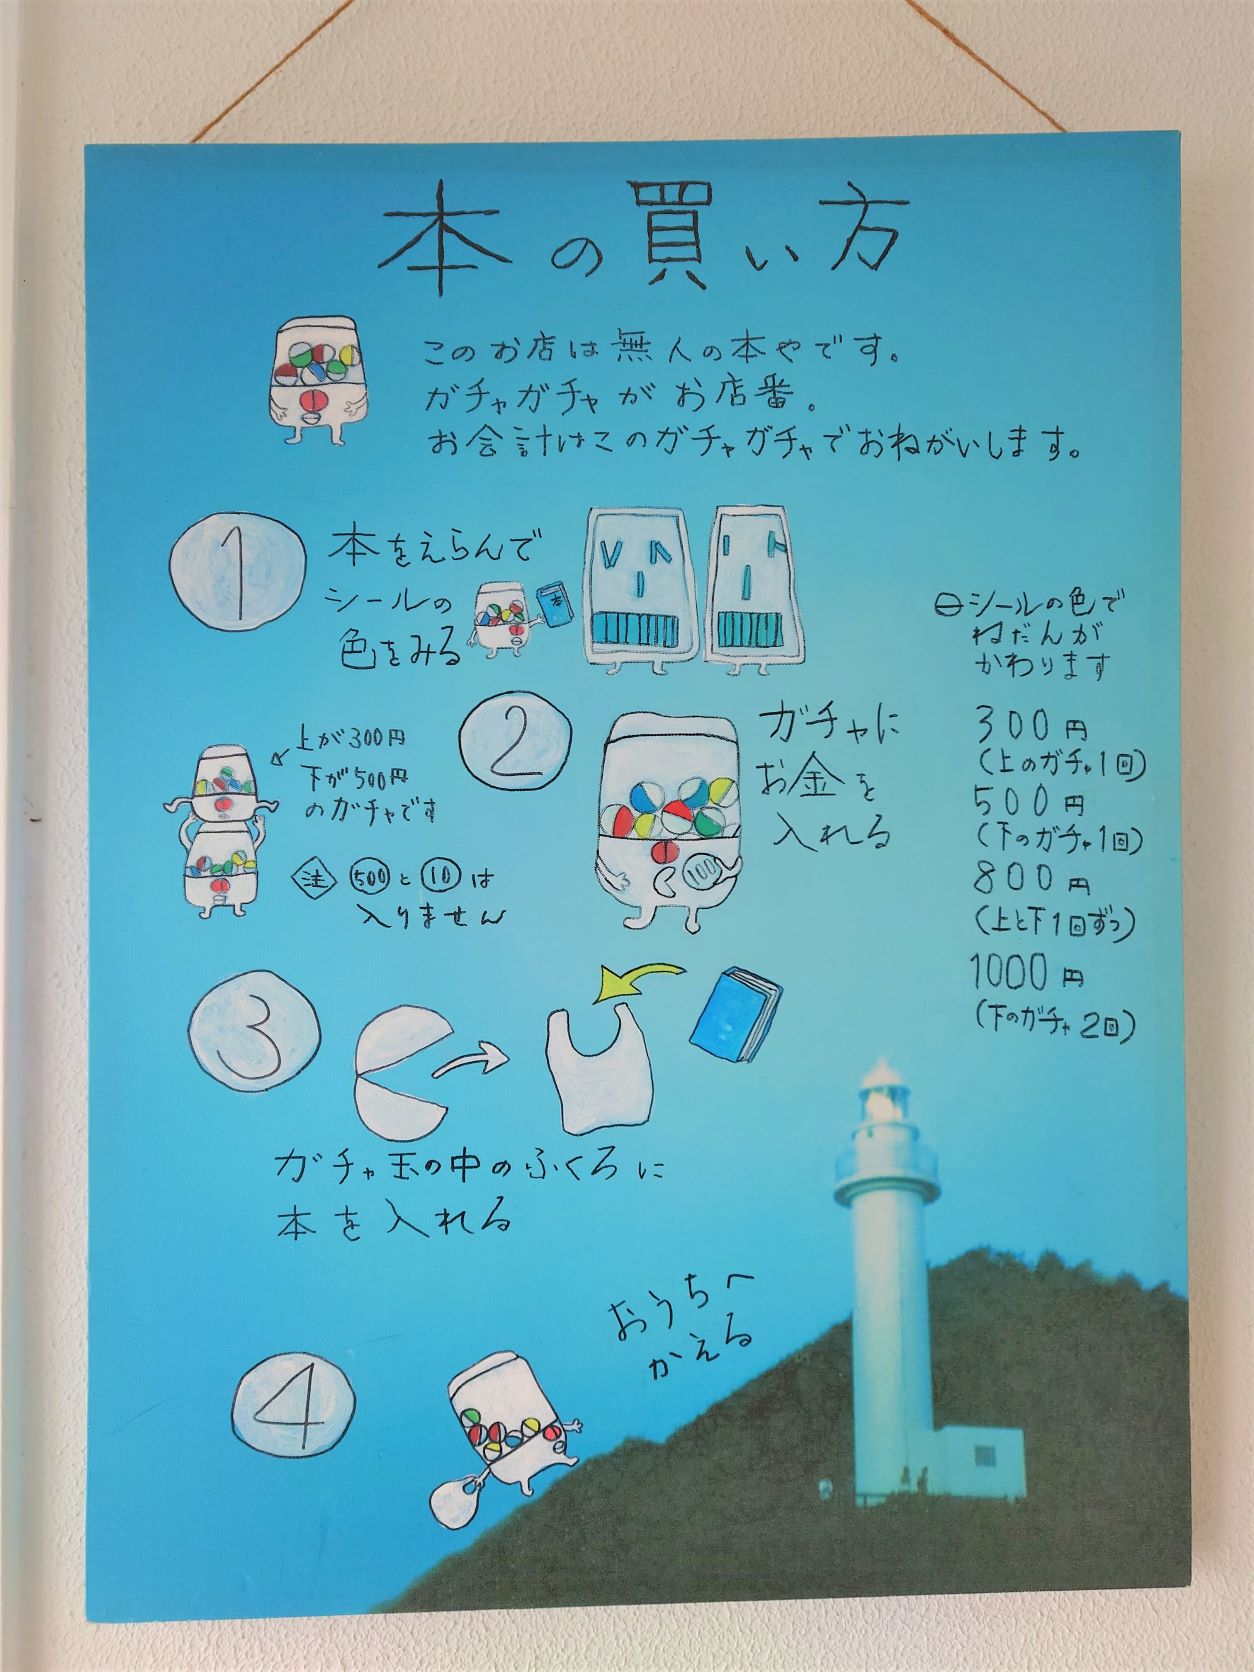 本の買い方
このお店は無人の本やです。
ガチャガチャがお店番。
お会計はこのガチャガチャでおねがいします。
1
本をえらんで
シールの
色をみる
本
シールの色で
ねだんが
かわります
300円
(上のガチャ1回)
500円
(下のガチャ1回)
800円
(上と下1回ずつ)
1000円
(下のガチャ2回)
2
ガチャに
お金を
入れる
100
上が300円
下が500円
のガチャです
注 500と10は
入りません
3
ガチャ玉の中のふくろに
本を入れる
4
おうちへ
かえる